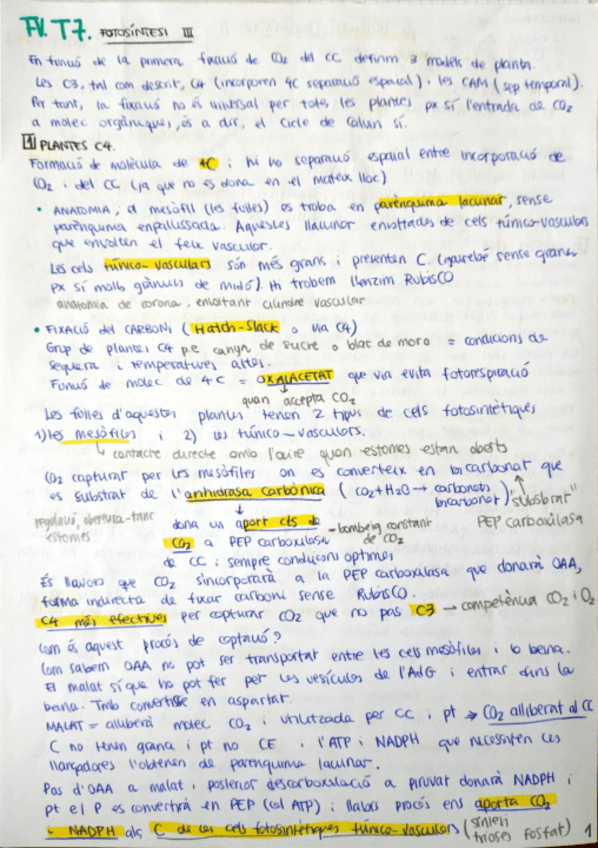 FV. T7. FOTOSÍNTESI III
En funció de la primera fixació de CO2 del CC definim 3 models de planta.
Les C3, tal com descrit, C4 (incorporen 4C separació espaial) i les CAM (sep temporal).
Per tant, la fixació no és universal per totes les plantes px sí l'entrada de CO2
a molec orgàniques, és a dir, el Cicle de Calvin sí.
1 PLANTES C4.
Formació de molècula de 4C i hi ha separació espaial entre incorporació de
CO2 i del CC (ja que no es dona en el mateix lloc)
• ANATOMIA: el mesòfil (les fulles) es troba en parènquima lacunar, sense
parènquima empallissada. Aquestes llacunar envoltades de cels túnico-vasculars
que envolten el feix vascular.
Les cels túnico-vasculars són més grans i presenten C. (sense grana
px sí molts grànuls de midó). Hi trobem l'enzim RubisCO
anatomia de corona, envoltant cilindre vascular
• FIXACIÓ del CARBONI (Hatch-Slack o via C4)
Grup de plantes C4 p.e canya de sucre o blat de moro = condicions de
sequera i temperatures altes.
Funció de molec de 4C = OXALACETAT que via evita fotorespiració
quan accepta CO2
Les fulles d'aquestes plantes tenen 2 tipus de cels fotosintètiques
1) les mesòfiles i 2) les túnico-vasculars.
contacte directe amb l'aire quan estomes estan oberts
CO2 capturat per les mesòfiles on es converteix en bicarbonat que
és substrat de l'anhidrasa carbònica (CO2+H2O → carbonats bicarbonat) "substrat"
regulació, obertura-tanc estomes
dona un aport cts de CO2 a PEP carboxilasa
- bombeig constant de CO2
PEP carboxilasa
de CC i sempre condicions optimes
És llavors que CO2 s'incorporarà a la PEP carboxilasa que donarà OAA,
forma indirecta de fixar carboni sense RubisCO.
C4 més efectives per capturar CO2 que no pas C3 → competència CO2 i O2
Com és aquest procés de captació?
Com sabem OAA no pot ser transportat entre les cels mesòfiles i la beina.
El malat sí que ho pot fer per les vesícules de l'AdG i entrar dins la
beina. Tmb convertirse en aspartat.
MALAT = alliberà molec CO2 i utilitzada per CC i pt → CO2 alliberat al CC
C no tenen grana i pt no CE i l'ATP i NADPH que necessiten les
l'obtenen de parenquima lacunar.
Pas d'OAA a malat i posterior descarboxilació a piruvat donarà NADPH i
pt el P es convertirà en PEP (col ATP) i llavors procés ens aporta CO2
i NADPH als C de les cels fotosintètiques túnico-vasculars (sinteri
trioses fosfat) 1